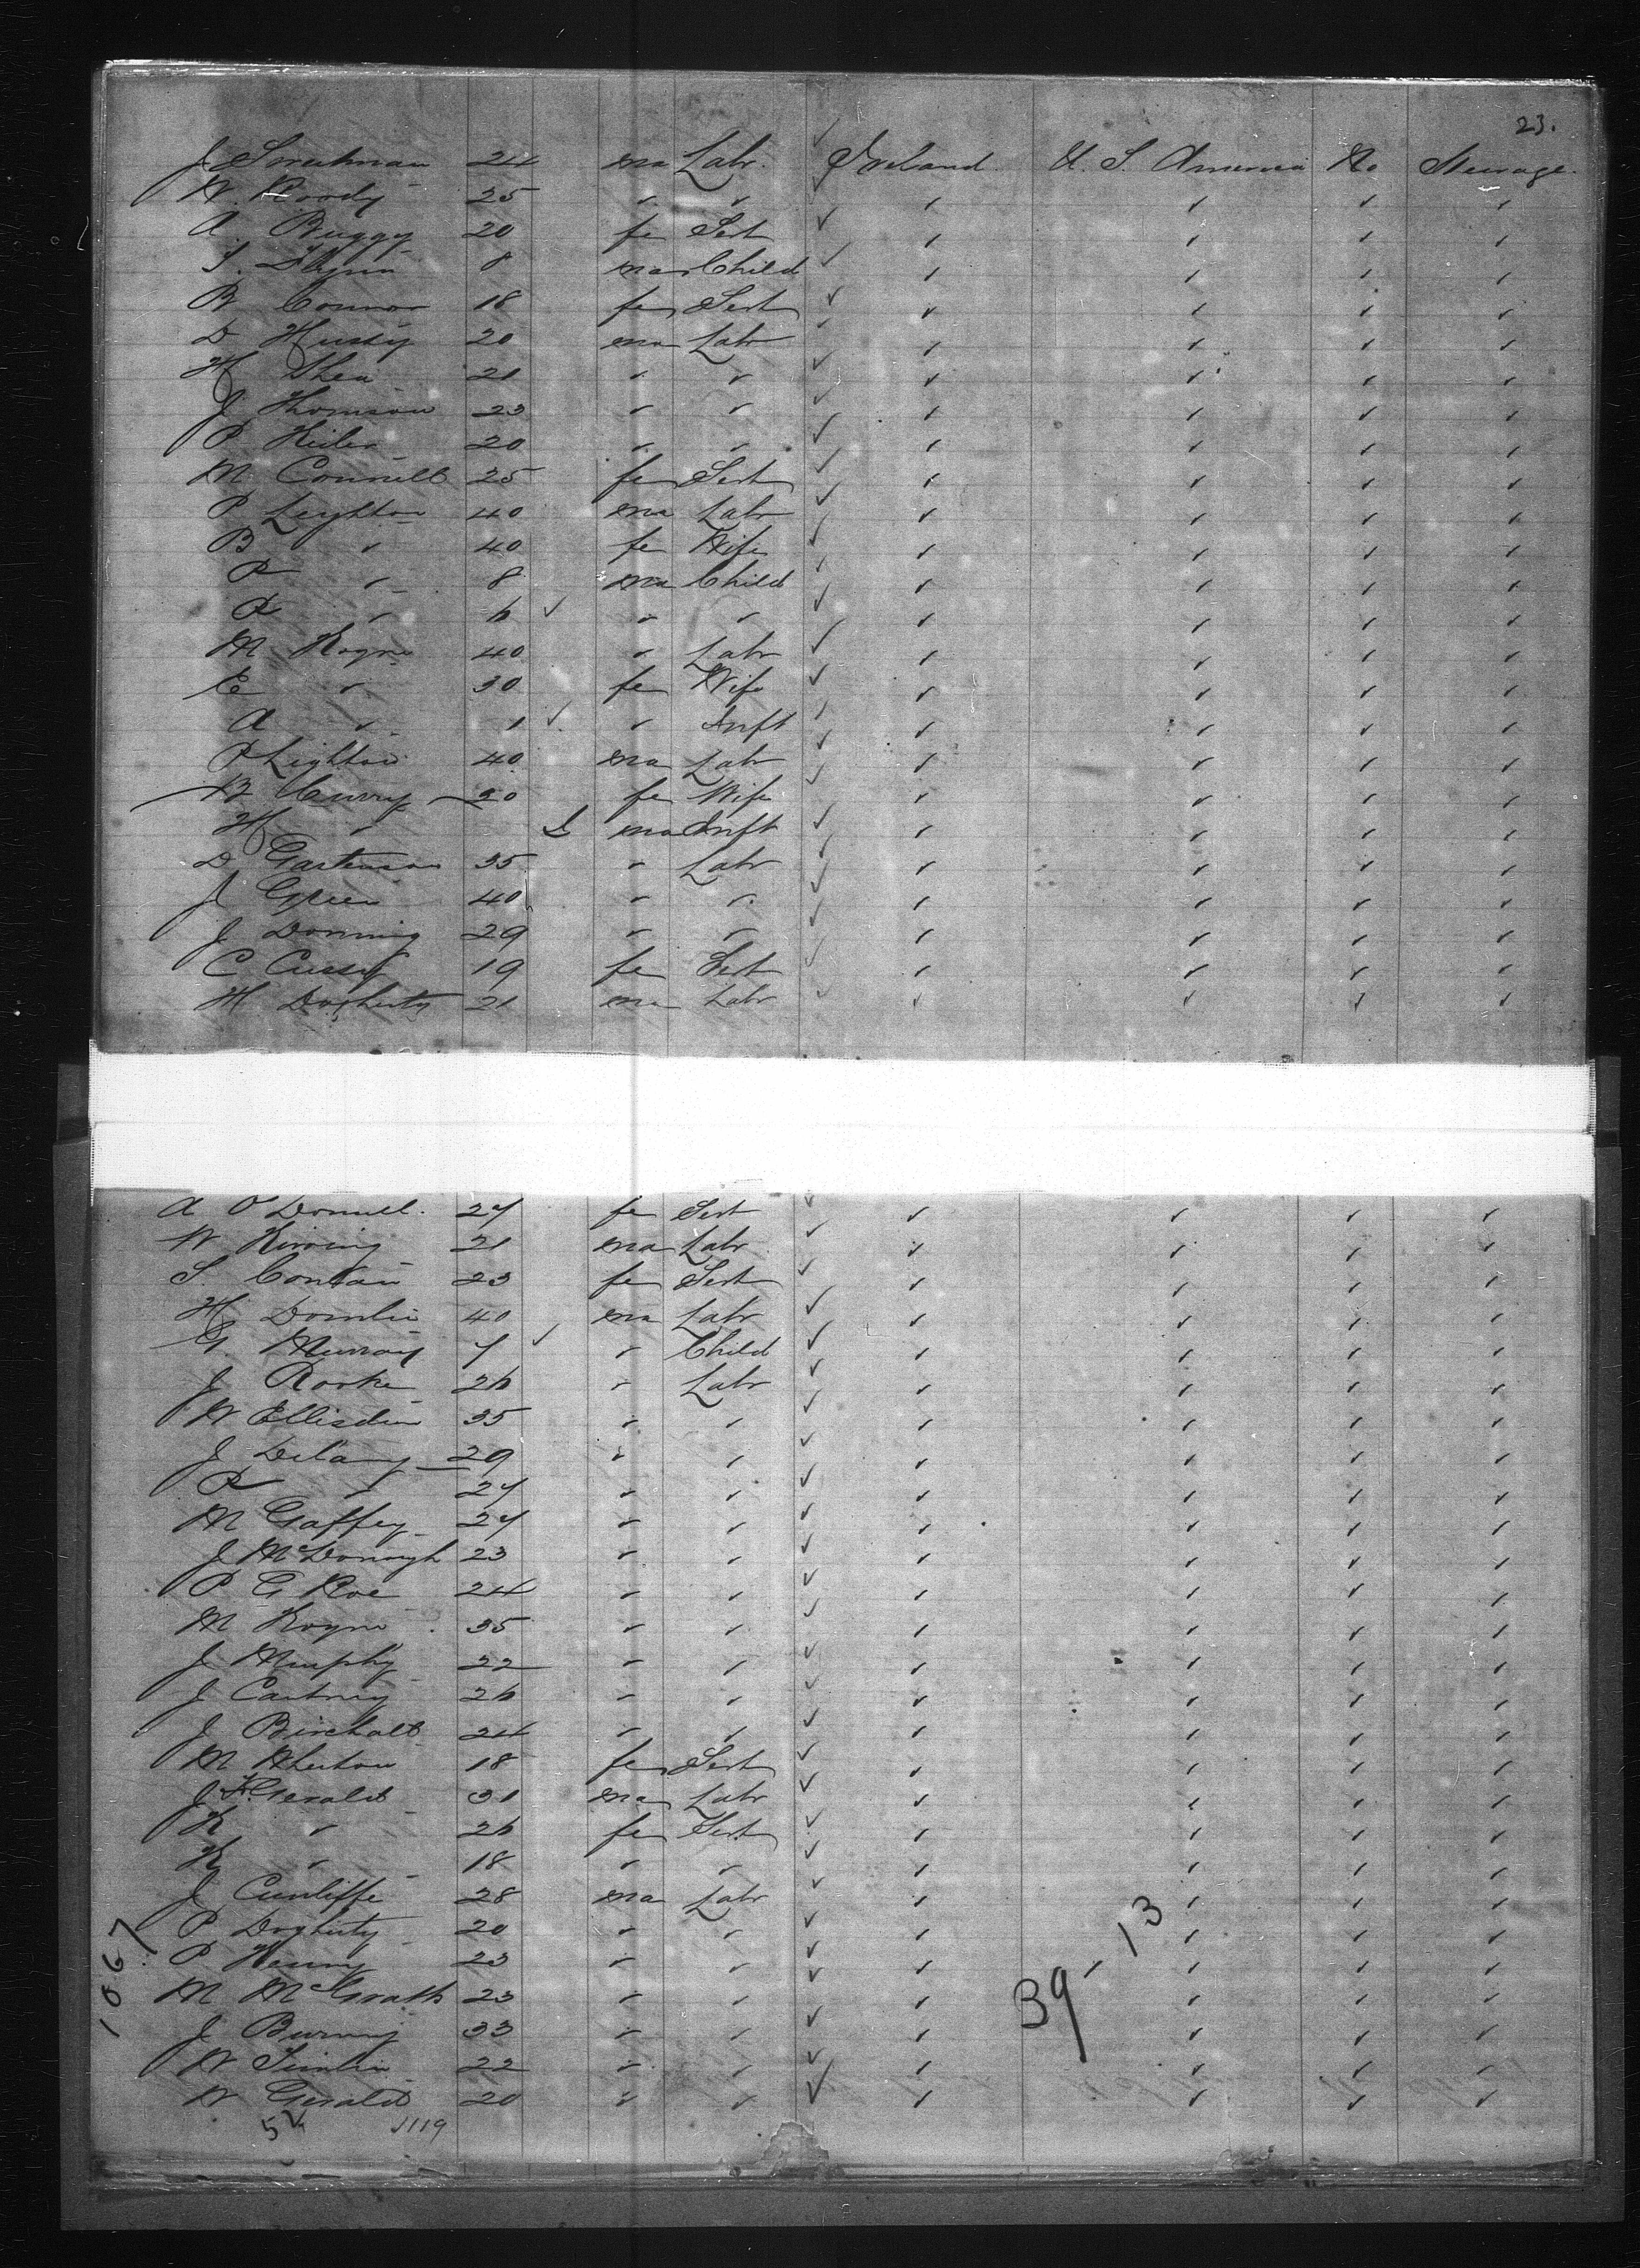 23.
J 24 ma Labr. Ireland. U. S. America No Steerage.
W. Roody 25 " " " " " "
A. Buggy 20 fe Sert " " " "
S. Flynn 8 ma Child " " " "
B Connor 18 fe Sert " " " "
D Hussy 20 ma Labr " " " "
H Shea 21 " " " " " "
J Thomson 23 " " " " " "
P 20 " " " " " "
M Connell 25 fe Sert " " " "
P Leighton 40 ma Labr " " " "
B " 40 fe Wife " " " "
P " 8 ma Child " " " "
R " 6 " " " " " "
M Rogne 40 " Labr " " " "
E " 30 fe Wife " " " "
A " 1 " Inft " " " "
P Lighton 40 ma Labr " " " "
B Curry 20 fe Wife " " " "
H " ma Inft " " " "
D 35 " Labr " " " "
J Green 40 " " " " " "
J Donning 29 " " " " " "
C 19 fe Sert " " " "
H Dogherty 21 ma Labr " " " "
A O'Donnell. 27 fe Sert " " " "
W Kirving 21 ma Labr " " " "
S. 23 fe Sert " " " "
H Domlin 40 ma Labr " " " "
G. Murray 7 " Child " " " "
J Rorke 26 " Labr " " " "
W Ellisdin 35 " " " " " "
J Delany 29 " " " " " "
R " 27 " " " " " "
M Gaffey 27 " " " " " "
J McDonough 23 " " " " " "
P G Roe 24 " " " " " "
M Rogne 35 " " " " " "
J Murphy 22 " " " " " "
J Cartney 26 " " " " " "
J Birchall 24 " " " " " "
M 18 fe Sert " " " "
J F. Gerald 31 ma Labr " " " "
K " 26 fe Sert " " " "
K " 18 " " " " " "
J Cunliffe 28 ma Labr " " " "
P Dogherty 20 " " " " " "
P Henry 23 " " " " " "
M McGrath 23 " " " " " "
J Burning 33 " " " " " "
W 22 " " " " " "
W Gerald 20 " " " " " "
39 - 13
1067
52 1119